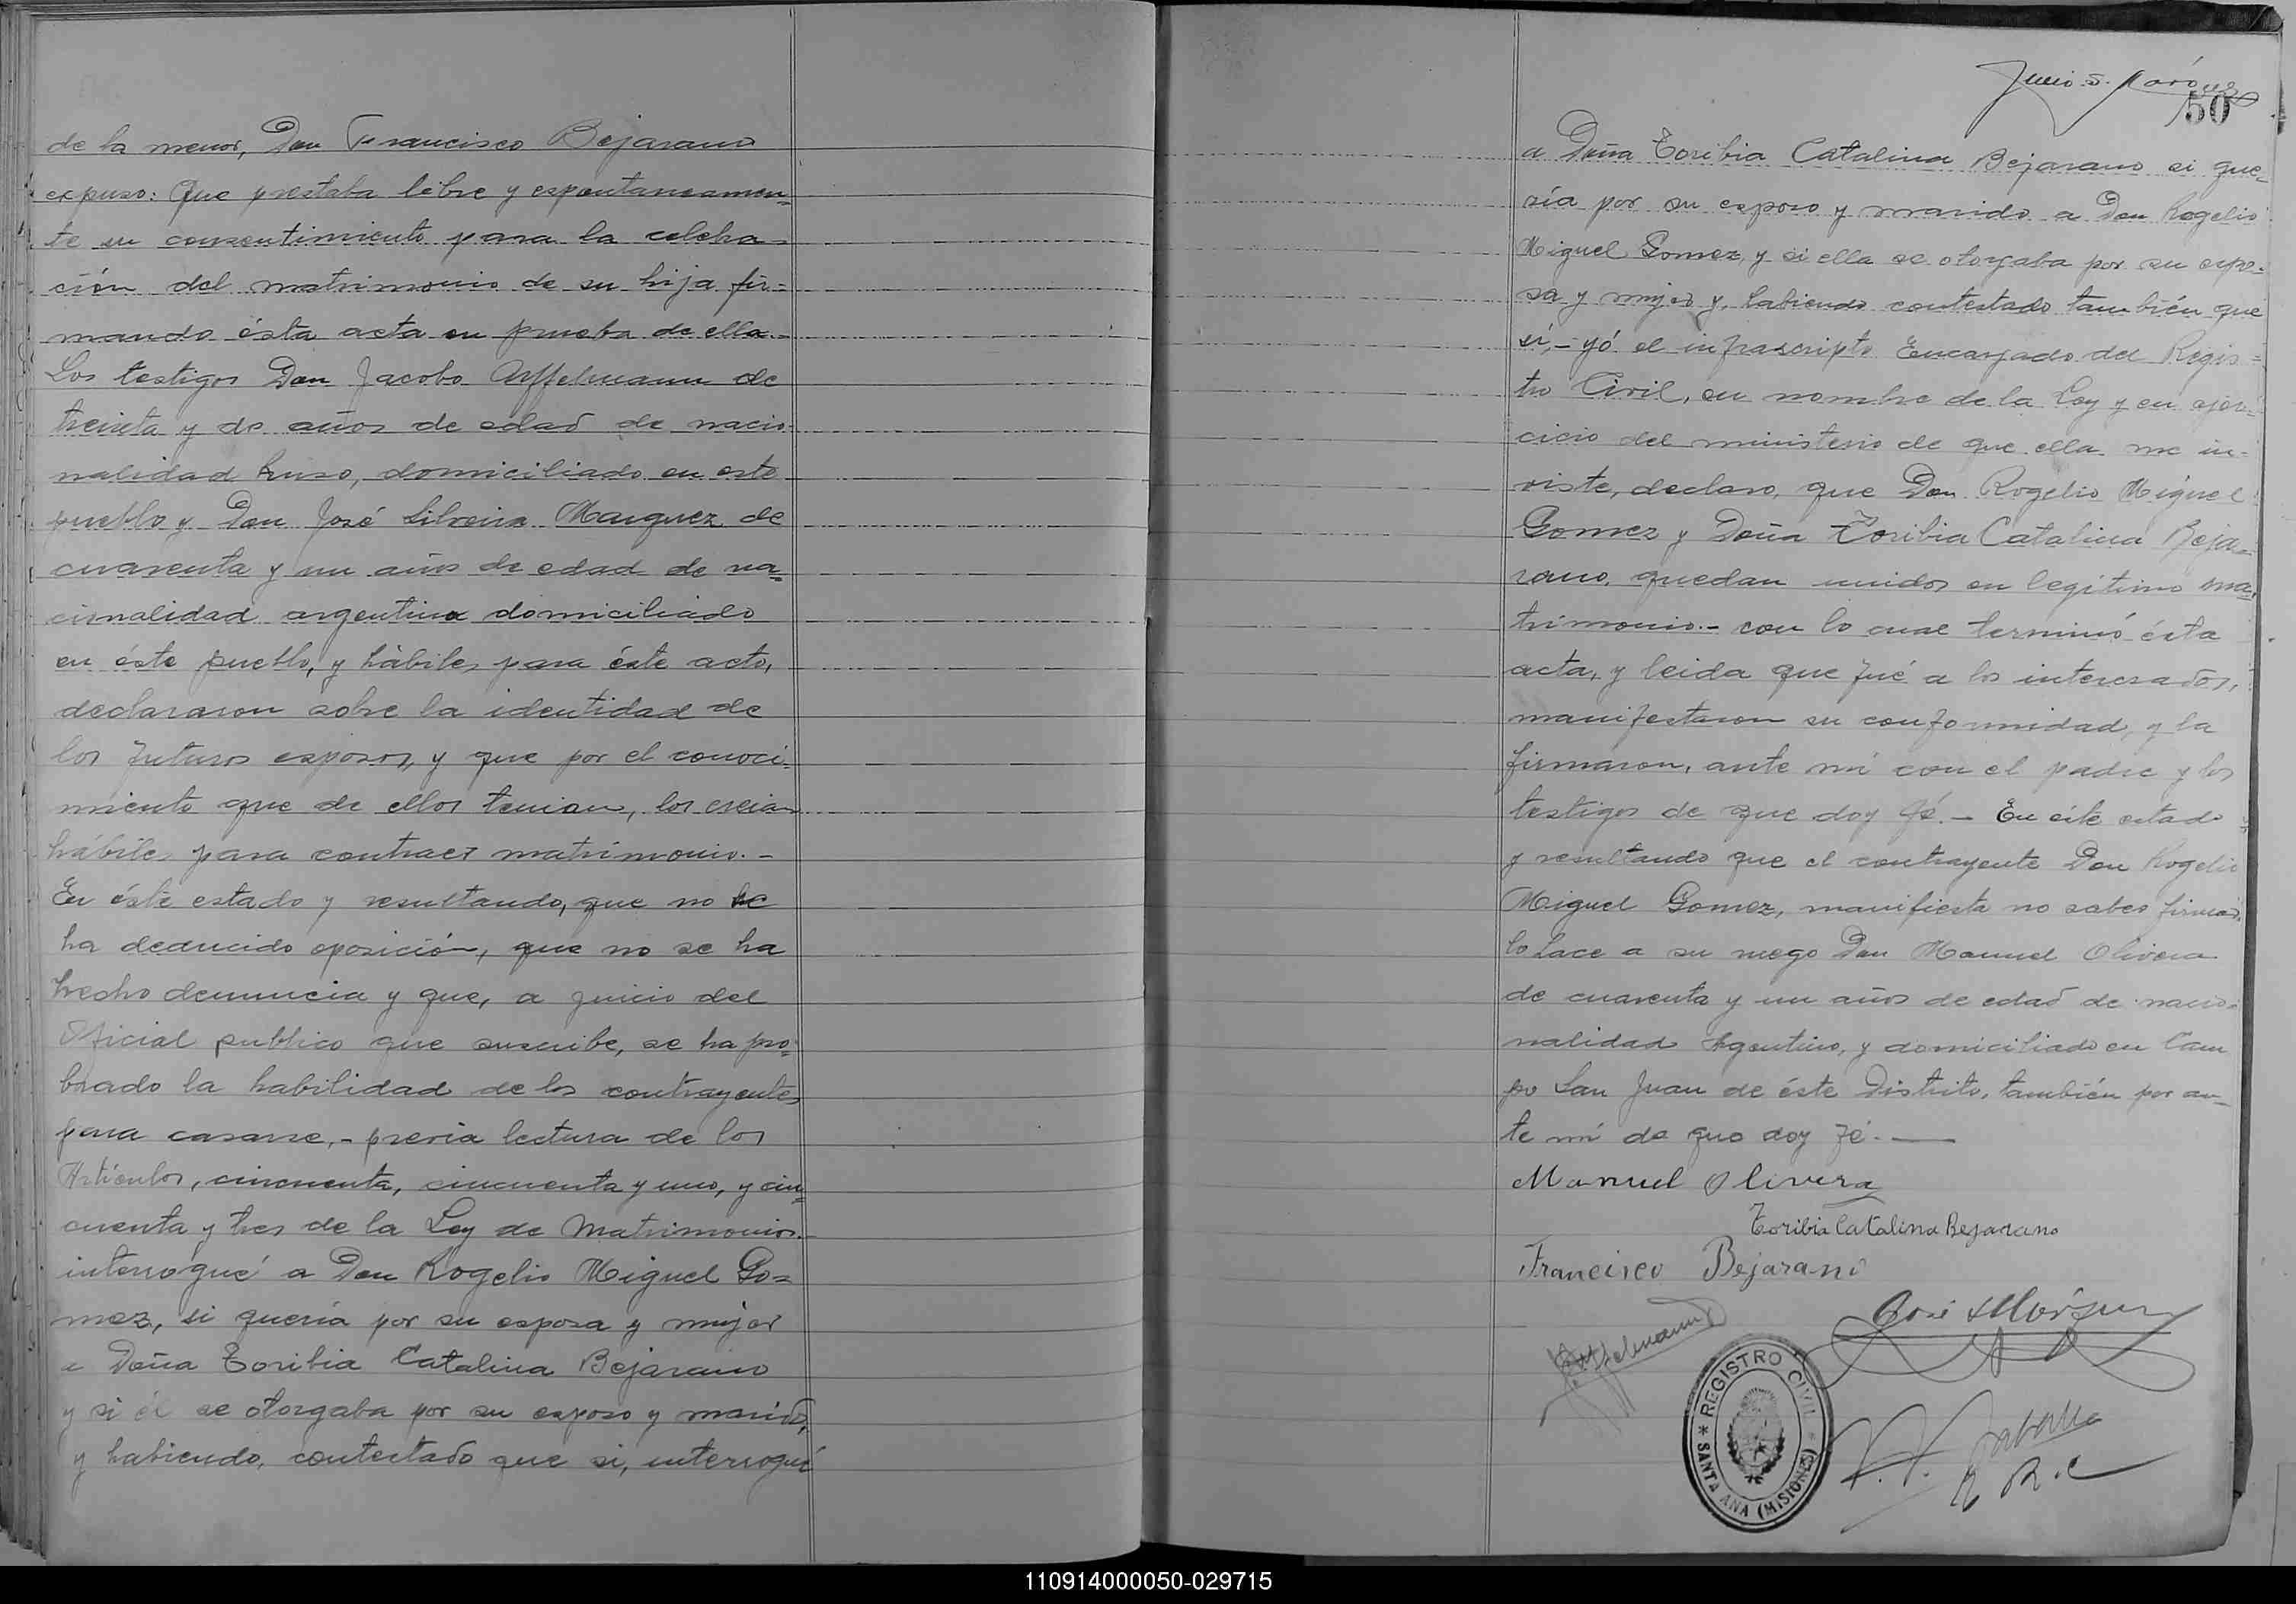 de la menor, Don Francisco Bejarano
expuso: Que prestaba libre y espontaneamen=
te su consentimiento para la celebra=
ción del matrimonio de su hija fir=
mando ésta acta en prueba de ello.=
Los testigos Don Jacobo Affelmann de
treinta y de años de edad de nacio
nalidad Ruso, domiciliado en este
pueblo y Don José Silveira Marquez de
cuarenta y un años de edad de na=
cionalidad argentina domiciliado
en éste pueblo, y hàbiles para éste acto,
declararon sobre la identidad de
los futuros esposos, y que por el conoci=
miento que de ellos tenian, los creian
hábiles para contraer matrimonio.-
En éste estado y resultando, que no se
ha deducido oposición, que no se ha
hecho denuncia y que, a juicio del
Oficial publico que suscribe, se ha pro=
brado la habilidad de los contrayentes
para casarse,- previa lectura de los
Artículos, cincuenta, cincuenta y uno, y cin=
cuenta y tres de la Ley de Matrimonios.
interrogué a Don Rogelio Miguel Go=
mez, si queria por su esposa y mujer
a Doña Toribia Catalina Bejarano
y si él se otorgaba por su esposo y marido,
y habiendo, contestado que si, interrogué
50
a Doña Toribia Catalina Bejarano si que=
ría por su esposo y marido a Don Rogelio
Miguel Gomez, y si ella se otorgaba por su espo=
sa y mujer y, habiendo contestado también que
sí,- yó el infrascripto Encargado del Regis=
tro Civil, en nombre de la Ley y en ejer=
cicio del ministerio de que ella me in=
viste, declaro, que Don Rogelio Miguel
Gomez y Doña Toribia Catalina Beja=
rano, quedan unidos en legítimo ma=
trimonio.- con lo cual terminó ésta
acta, y leida que fué a los interesados,
manifestaron su conformidad, y la
firmaron, ante mí con el padre y los
testigos de que doy fé.- En éste estado
y resultando que el contrayente Don Rogelio
Miguel Gomez, manifiesta no saber firmar,
lo hace a su ruego Don Manuel Olivera
de cuarenta y un años de edad de nacio=
nalidad Argentino, y domiciliado en Cam
po San Juan de éste Distrito, también por an=
te mí de que doy fé.-
Manuel Olivera
Toribia Catalina Bejarano
Francisco Bejarano
Affelmann
José S Márquez
REGISTRO CIVIL
SANTA ANA (MISIONES)
E. R. C
110914000050-029715